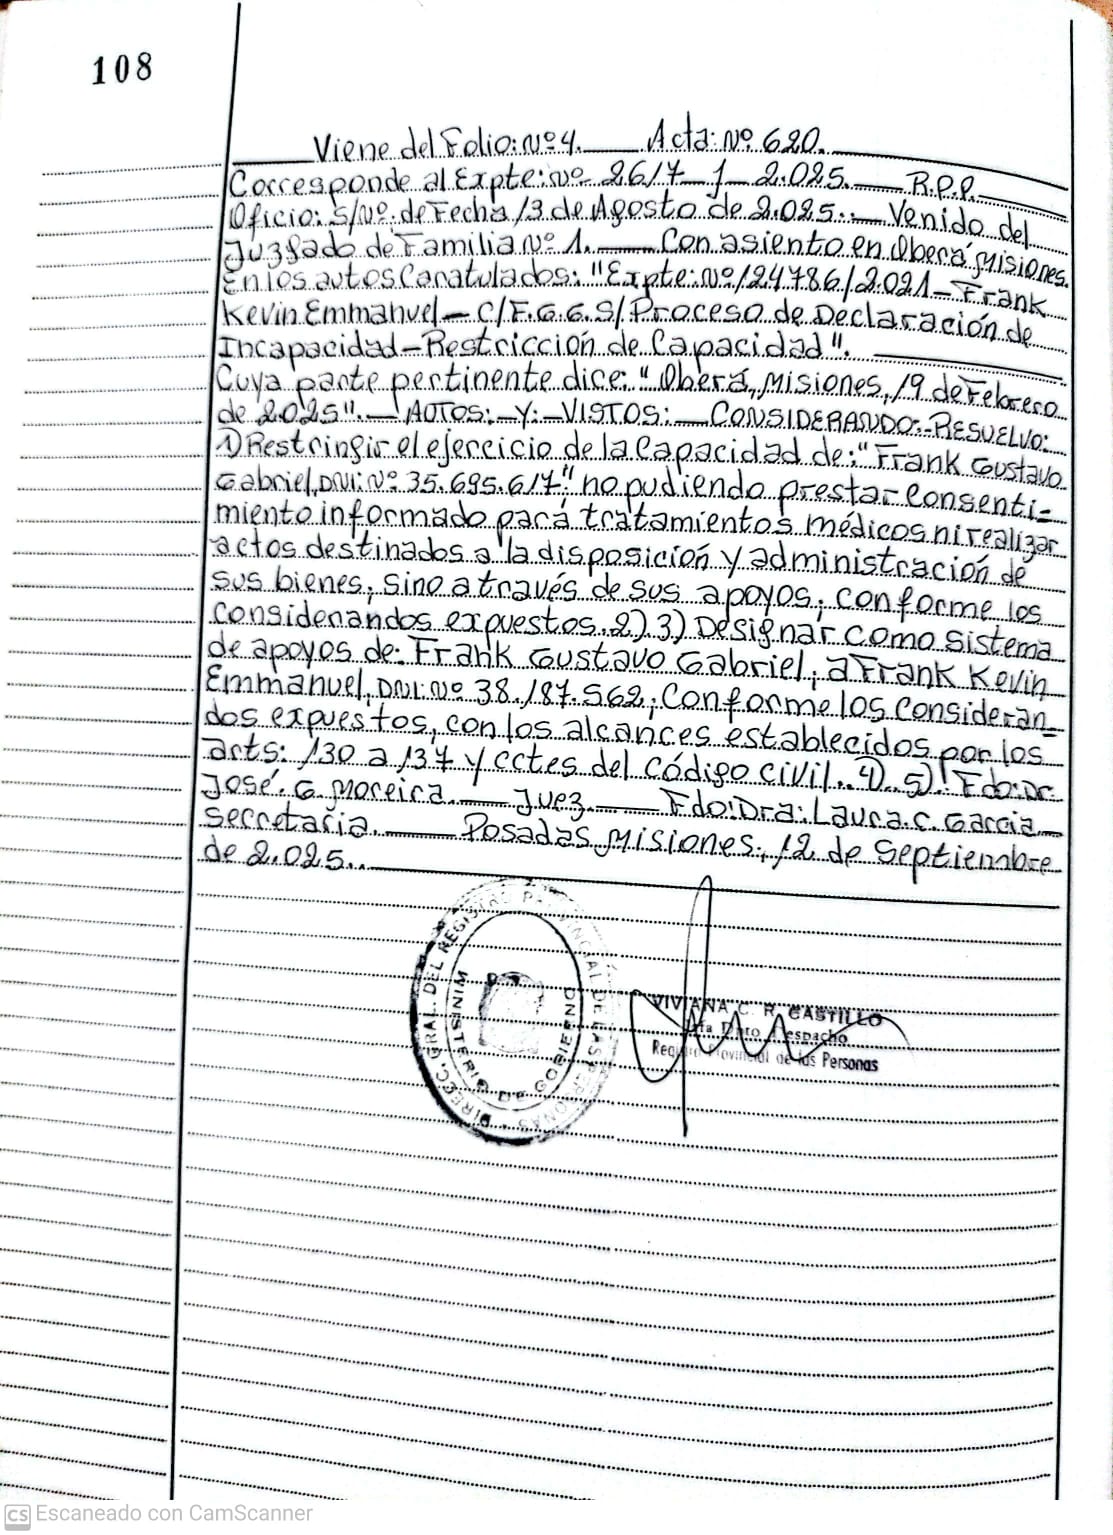 108
Viene del Folio: Nº 4. Acta: Nº 620.
Corresponde al Expte: Nº 2617-J-2.025. R.P.P.
Oficio: S/Nº. de Fecha 13 de Agosto de 2.025. Venido del
Juzgado de Familia Nº 1. Con asiento en Oberá Misiones.
En los autos Caratulados: "Expte: Nº 124786/2.021-Frank
Kevin Emmanuel- C/F.G.G.S/Proceso de Declaración de
Incapacidad-Restricción de Capacidad".
Cuya parte pertinente dice: "Oberá, Misiones, 19 de Febrero
de 2025". AUTOS: Y: VISTOS: CONSIDERANDO:-RESUELVO:
1) Restringir el ejercicio de la Capacidad de: "Frank Gustavo
Gabriel, DNI: Nº 35.695.617" no pudiendo prestar Consenti=
miento informado para tratamientos médicos ni realizar
actos destinados a la disposición y administración de
sus bienes, sino a través de sus apoyos, conforme los
considerandos expuestos. 2) 3) Designar como Sistema
de apoyos de: Frank Gustavo Gabriel, a Frank Kevin
Emmanuel, DNI: Nº 38.187.562, conforme los Consideran=
dos expuestos, con los alcances establecidos por los
arts: 130 a 137 y cctes del Código Civil.. 4).. 5). Fdo: Dr.
José. G. Moreira. Juez. Fdo: Dra: Laura. C. Garcia
Secretaria. Posadas, Misiones, 12 de Septiembre
de 2.025..
DIRECC. GRAL. DEL REGISTRO PROVINCIAL DE LAS PERSONAS
MINISTERIO DE GOBIERNO
VIVIANA C. R. CASTILLO
Jfa Dpto Despacho
Registro Provincial de las Personas
CS Escaneado con CamScanner